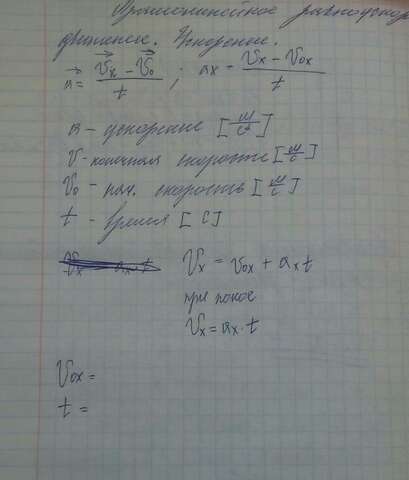 Прямолинейное равноускор
движение. Ускорение.
a⃗ = (v⃗x - v⃗0) / t ; ax = (vx - v0x) / t
a - ускорение [м/с²]
v - конечная скорость [м/с]
v0 - нач. скорость [м/с]
t - время [с]
vx = v0x + ax t
при покое
vx = ax · t
v0x =
t =